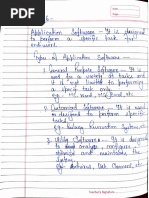 Application Software - It is designed
to perform a specific task for
end-user.
Types of Application Software -
1. General Purpose Software - It is
used for a variety of tasks and
it is not limited to perform a
specific task only.
eg:- MS word, MS Excel, etc.
2. Customized Software - It is used
or designed to perform specific
tasks.
eg:- Railway Reservation System, etc.
3. Utility Software - It is designed
to analyse, configure, optimize
and maintains the
system.
eg:- Antivirus, Disk Cleanner, etc.
Teacher's Signature